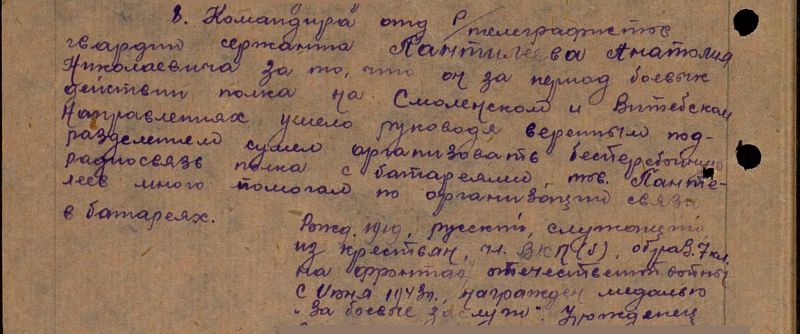 8. Командира отд р/телеграфистов
гвардии сержанта Пантилеева Анатолия
Николаевича за то, что он за период боевых
действий полка на Смоленском и Витебском
направлениях умело руководя вверенным под-
разделением сумел организовать бесперебойную
радиосвязь полка с батареями, тов. Панте-
леев много помогал по организации связи
в батареях.
Рожд. 1919, русский, служащий,
из крестьян, чл. ВКП(б), образ. 7 кл.
на фронтах отечественной войны
с Июня 1943г., награжден медалью
"За боевые заслуги". Урожденец